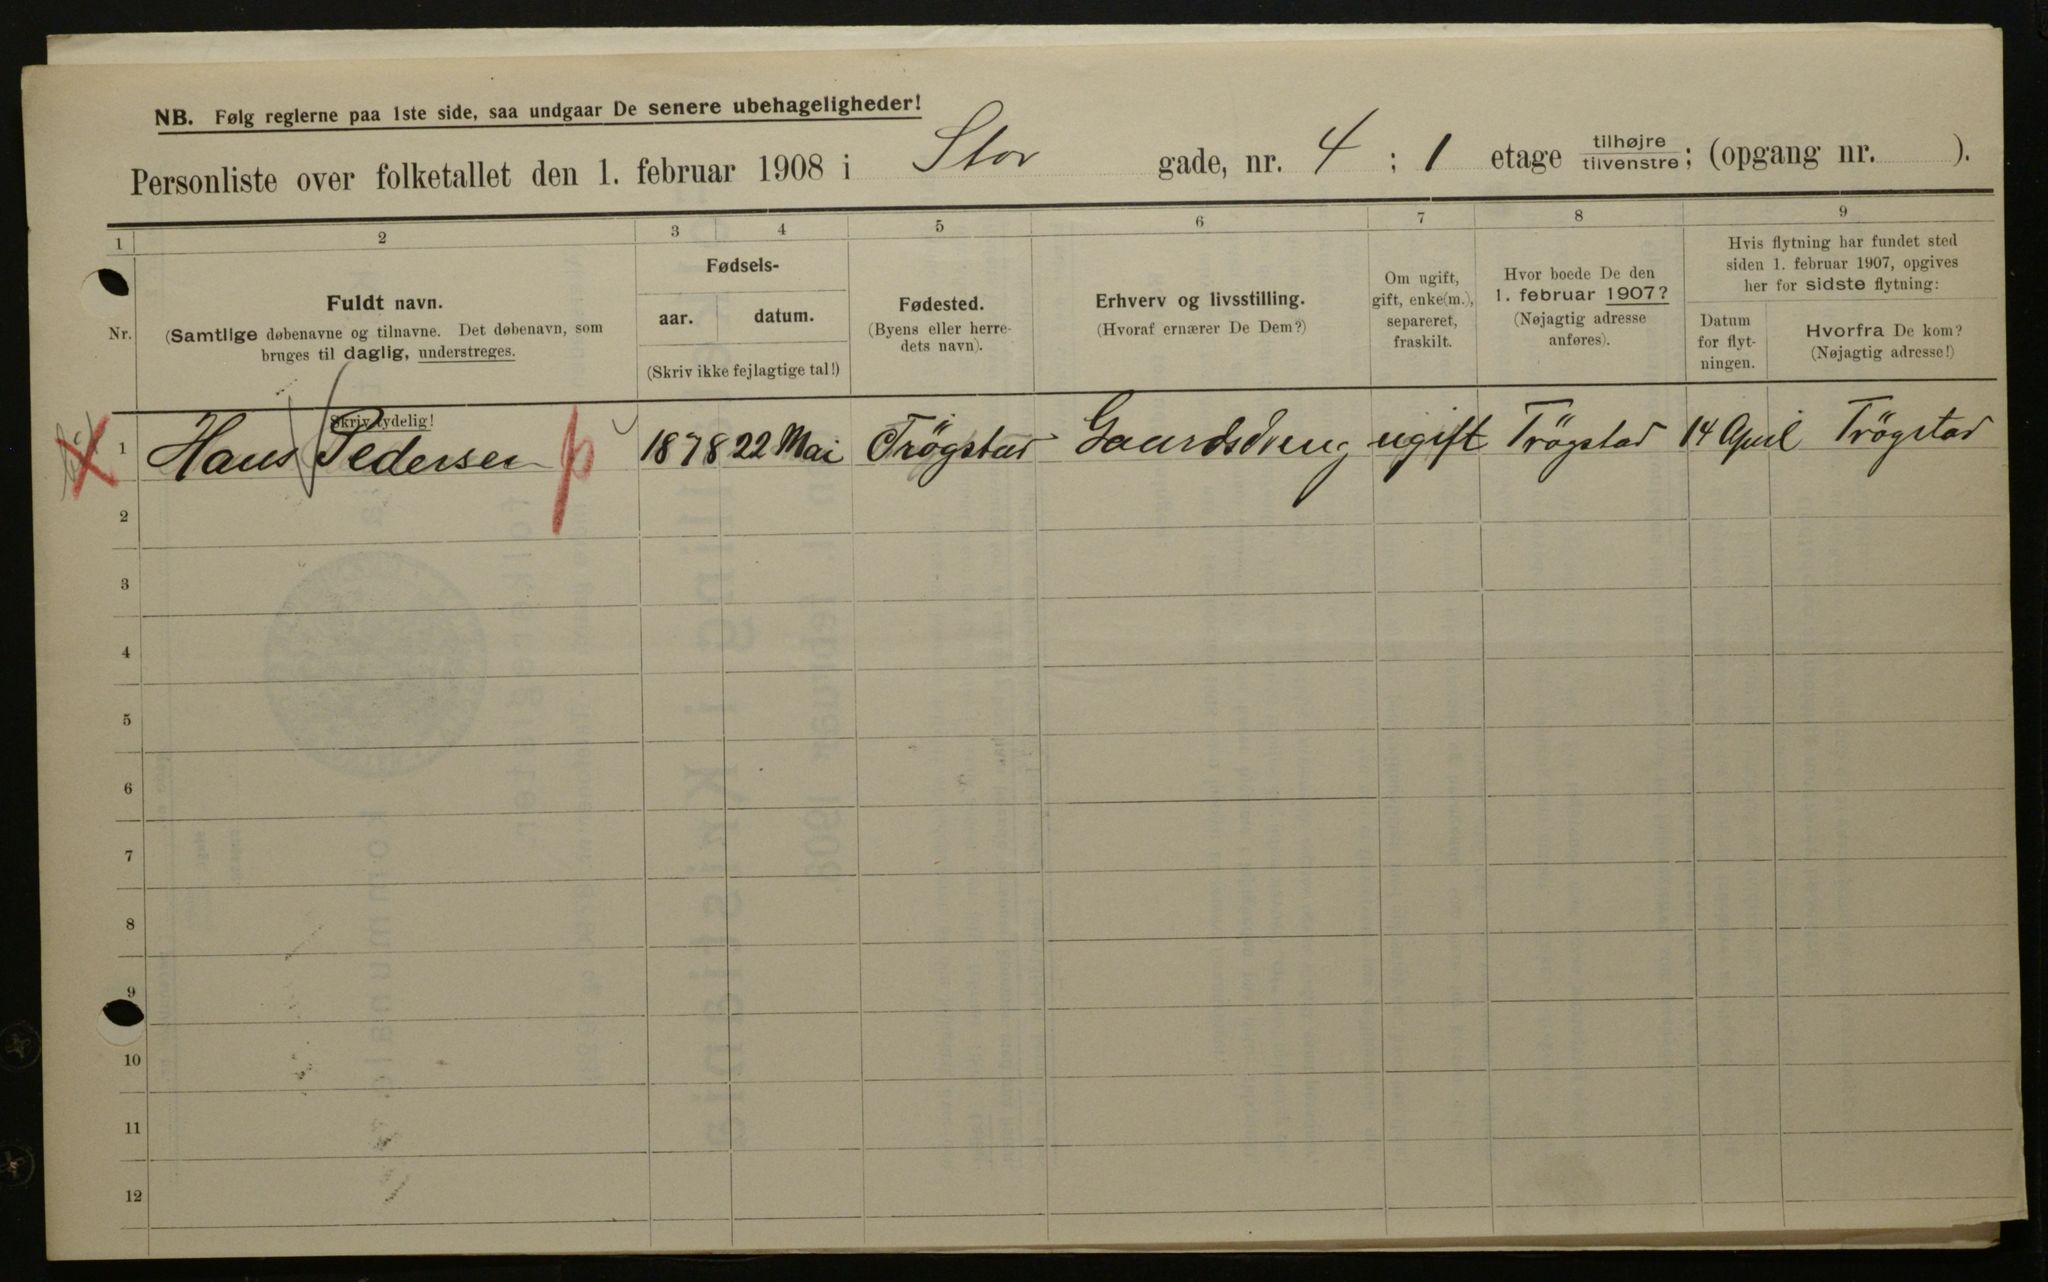 NB. Følg reglerne paa 1ste side, saa undgaar De senere ubehageligheder!
Personliste over folketallet den 1. februar 1908 i Stor gade, nr. 4 ; 1 etage tilhøjre/tilvenstre; (opgang nr. ).
1 2 3 4 5 6 7 8 9
Nr.
Fuldt navn.
(Samtlige døbenavne og tilnavne. Det døbenavn, som
bruges til daglig, understreges.
Skriv tydelig!
Fødsels-
aar. datum.
(Skriv ikke fejlagtige tal!)
Fødested.
(Byens eller herre-
dets navn).
Erhverv og livsstilling.
(Hvoraf ernærer De Dem?)
Om ugift,
gift, enke(m.),
separeret,
fraskilt.
Hvor boede De den
1. februar 1907?
(Nøjagtig adresse
anføres).
Hvis flytning har fundet sted
siden 1. februar 1907, opgives
her for sidste flytning:
Datum
for flyt-
ningen.
Hvorfra De kom?
(Nøjagtig adresse!)
1 Hans Pedersen 1878 22 Mai Trögstad Gaardsdreng ugift Trögstad 14 April Trögstad
2
3
4
5
6
7
8
9
10
11
12